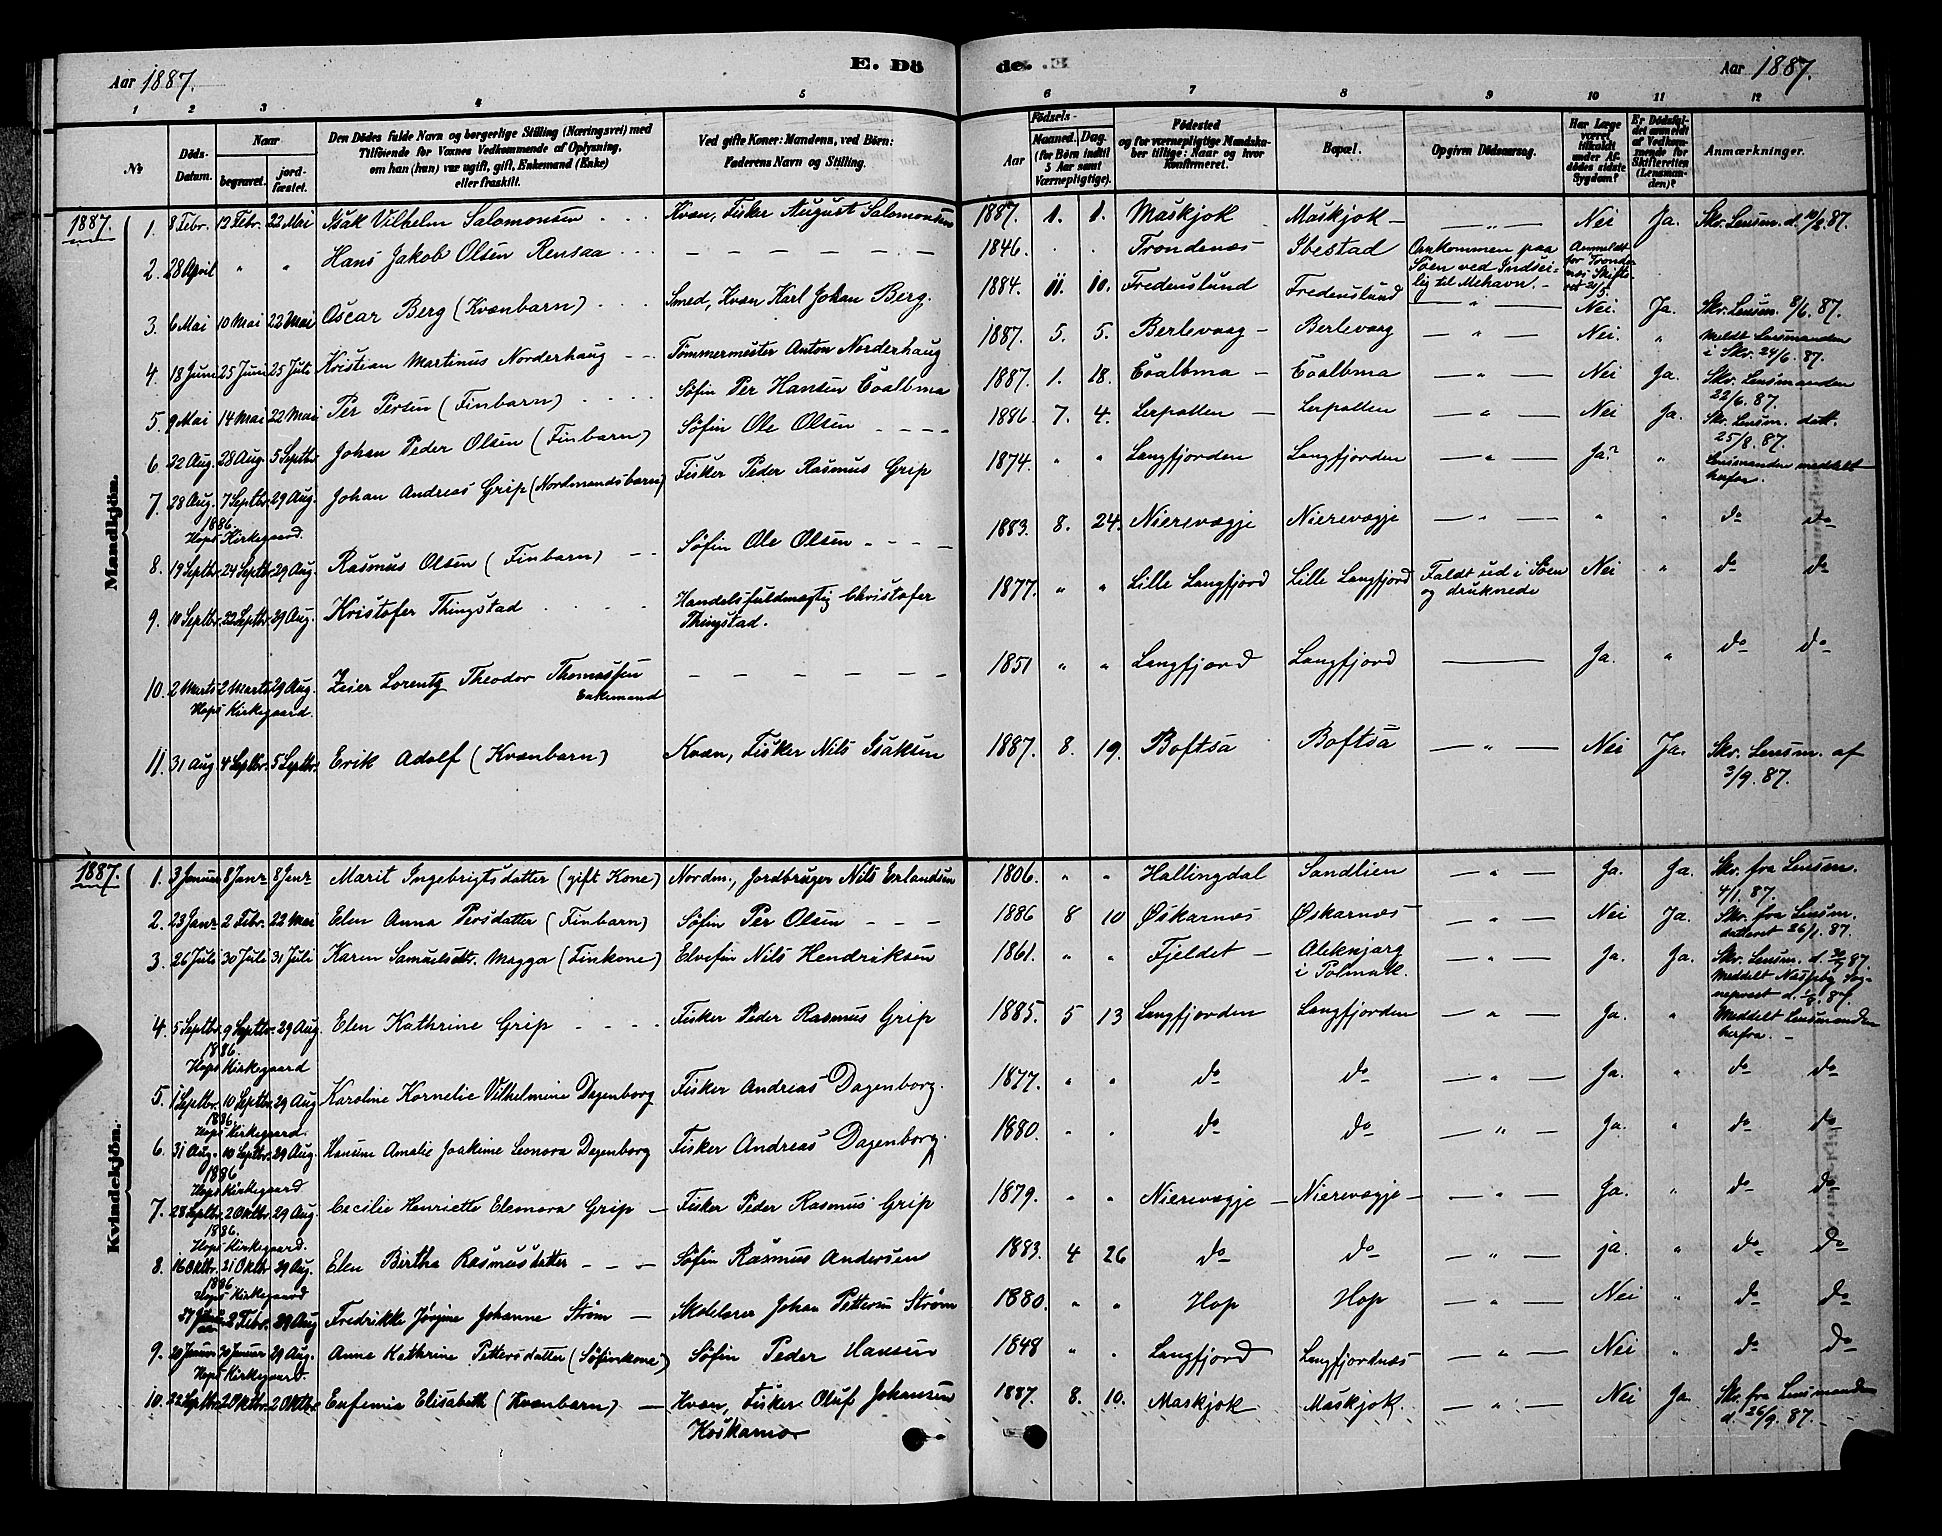 Aar 1887. E. Dö de. E Aar 1887.
1 2 3 4 5 6 7 8 9 10 11 12
No
Döds-Datum.
Naar begravet. jordfæstet.
Den Dödes fulde Navn og borgerlige Stilling (Næringsvei) med Tilföiende for Voxnes Vedkommende af Oplysning, om han (hun) var ugift, gift, Enkemand (Enke) eller fraskilt.
Ved gifte Koner: Mandens, ved Børn: Faderens Navn og Stilling.
Födsels- Aar Maaned. Dag. (for Börn indtil 5 Aar samt Værnepligtige).
Födested og for værnepligtige Mandskaber tillige: Naar og hvor Konfirmeret.
Bopæl.
Opgiven Dödsaarsag.
Har Læge været tilkaldt under Afdödes sidste Sygdom?
Er Dödsfaldet anmeldt af Vedkommende for Skifteretten (Lensmanden)?
Anmærkninger.
Mandkjön.
1887. 1. 8 Febr. 12 Febr. 22 Mai Isak Vilhelm Salomonsen . . . Kvæn, Fisker August Salomonsen 1887. 1. 1. Maskjok Maskjok — — " — Nei Ja. Skr. Lensm. d. 10/2 87.
2. 28 April " " Hans Jakob Olsen Rensaa . . . — — — — — 1846. . . Trondenæs Ibestad Omkommen paa Søen ved Indseiling til Mehavn. — Anmeldt for Trondenæs Skifteret 21/5.
3. 6 Mai 10 Mai 22 Mai Oscar Berg (Kvænbarn) . . . Smed, Kvæn Karl Johan Berg. 1884. 11. 10. Fredenslund Fredenslund — " — Nei. Ja. Skr. Lensm. 8/6. 87.
4. 18 Juni 25 Juni 25 Juli Kristian Martinus Norderhaug — — Tømmermester Anton Norderhaug 1887. 5. 5. Berlevaag — Berlevaag — " — Nei. " Meldt Lensmanden i Skr. 24/6. 87.
5. 9 Mai 14 Mai 22 Mai Per Persen (Finbarn) . . . . Søfin Per Hansen Coalbma 1887. 1. 18. Coalbma — Coalbma — " — Nei Ja. Skr. Lensmanden 22/6. 87.
6. 22 Aug. 28 Aug. 5 Septbr. Johan Peder Olsen (Finbarn) Søfin Ole Olsen — — — — 1886. 7. 4. Lerpollen — Lerpollen — " — Nei Ja. Skr. Lensm. datt. 25/8. 87.
7. 28 Aug. 7 Septbr. 29 Aug. Johan Andreas Grip (Nordmandsbarn) Fisker Peder Rasmus Grip 1874. " " Langfjorden Langfjorden — " — Ja? " Lensmanden meddelt herfra.
1886. Hops Kirkegaard.
8. 19 Septbr. 24 Septbr. 29 Aug. Rasmus Olsen (Finbarn) — — Søfin Ole Olsen — — — — 1883. 8. 24. Nierevægje Nierevægje — " — " " do do
9. 10 Septbr. 22 Septbr. 29 Aug. Kristofer Thingstad . . . . Handelsfuldmægtig Christofer Thingstad. 1877. " " Lille Langfjord Lille Langfjord Faldt ud i Søen og druknede Nei " do do
10. 2 Marts 2 Marts 29 Aug. Zeier Lorentz Theodor Thomassen Enkemand — — — — — 1851 " " Langfjord Langfjord — Ja. " do do
Hops Kirkegaard.
11. 31 Aug. 4 Septbr. 5 Septbr. Erik Adolf (Kvænbarn) Kvæn, Fisker Nils Isaksen 1887. 8. 19. Boftsa Boftsa — " — Nei Ja. Skr. Lensm. af 3/9. 87.
Kvindekjön.
1887. 1. 3 Januar 8 Janr 8 Janr Marit Ingebrigtsdatter (gift Kone) Nordm., Jordbruger Nils Erlandsen 1806. " " Hallingdal Sandlien — " — Ja. Ja. Skr. fra Lensm. 4/1. 87.
2. 23 Janr 2 Febr. 22 Mai Elen Anna Persdatter (Finbarn) Søfin Per Olsen — — — 1886 8 10 Øskarnæs Øskarnæs — " — Nei Ja. Skr. fra Lensm. datteret 26/1. 87.
3. 26 Juli 30 Juli 31 Juli Karen Samuelsdtt. Magga (Finkone) Elvefin Nils Hendriksen 1861. " " Fjeldet — Aleknjarg i Polmak. — " — Ja. Ja. Skr. Lensm. d. 30/7 87. Meddelt Næsseby Sogneprest d. 1/8. 87.
4. 5 Septbr. 9 Septbr. 29 Aug. Elen Kathrine Grip — — — — Fisker Peder Rasmus Grip 1885. 5 13 Langfjorden Langfjorden — " — Ja. " Meddelt Lensmanden herfra. —
1886. Hops Kirkegaard
5. 1 Septbr. 10 Septbr. 29 Aug Karoline Kornelie Vilhelmine Dagenborg Fisker Andreas Dagenborg. 1877. " " do do — " — Ja. " do do
1886. Hops Kirkegaard.
6. 31 Aug. 10 Septbr. 29 Aug. Hansine Amalie Joakime Leonora Dagenborg Fisker Andreas Dagenborg. 1880. " " do do — " — Ja. " do do
1886 Hops Kirkegaard
7. 28 Septbr. 2 Oktbr. 29 Aug. Cecilie Henriette Eleonora Grip — Fisker Peder Rasmus Grip 1879. " " Nierevægje — Nierevægje — — " — Ja. " do do
1886. Hops Kirkegaard.
8. 16 Oktbr. 21 Oktbr 29 Aug. Elen Bertha Rasmusdatter — — — Søfin Rasmus Andersen 1883. 4 26 do do — " — ja. " do do
1886 Hops Kirkegaard
27 Januar 2 Febr. 29 Aug Fredrikke Jørgine Johanne Strøm — Skolelærer Johan Petterson Strøm 1880. " " Hop Hop — " — Nei " do do
9. 20 Januar 30 Januar 29 Aug. Anne Kathrine Pettersdatter (Søfinkone) Søfin Peder Hansen 1848 " " Langfjord Langfjordnæs — " — Nei " do do
Hops Kirkegaard.
10. 22 Septbr 2 Oktbr. 2 Oktbr Eufemia Elisabeth (Kvænbarn) — Kvæn, Fisker Oluf Johansen Koskamo 1887. 8. 10. Maskjok Maskjok. — " — Nei Ja. Skr. fra Lensmanden d. 26/9. 87. —